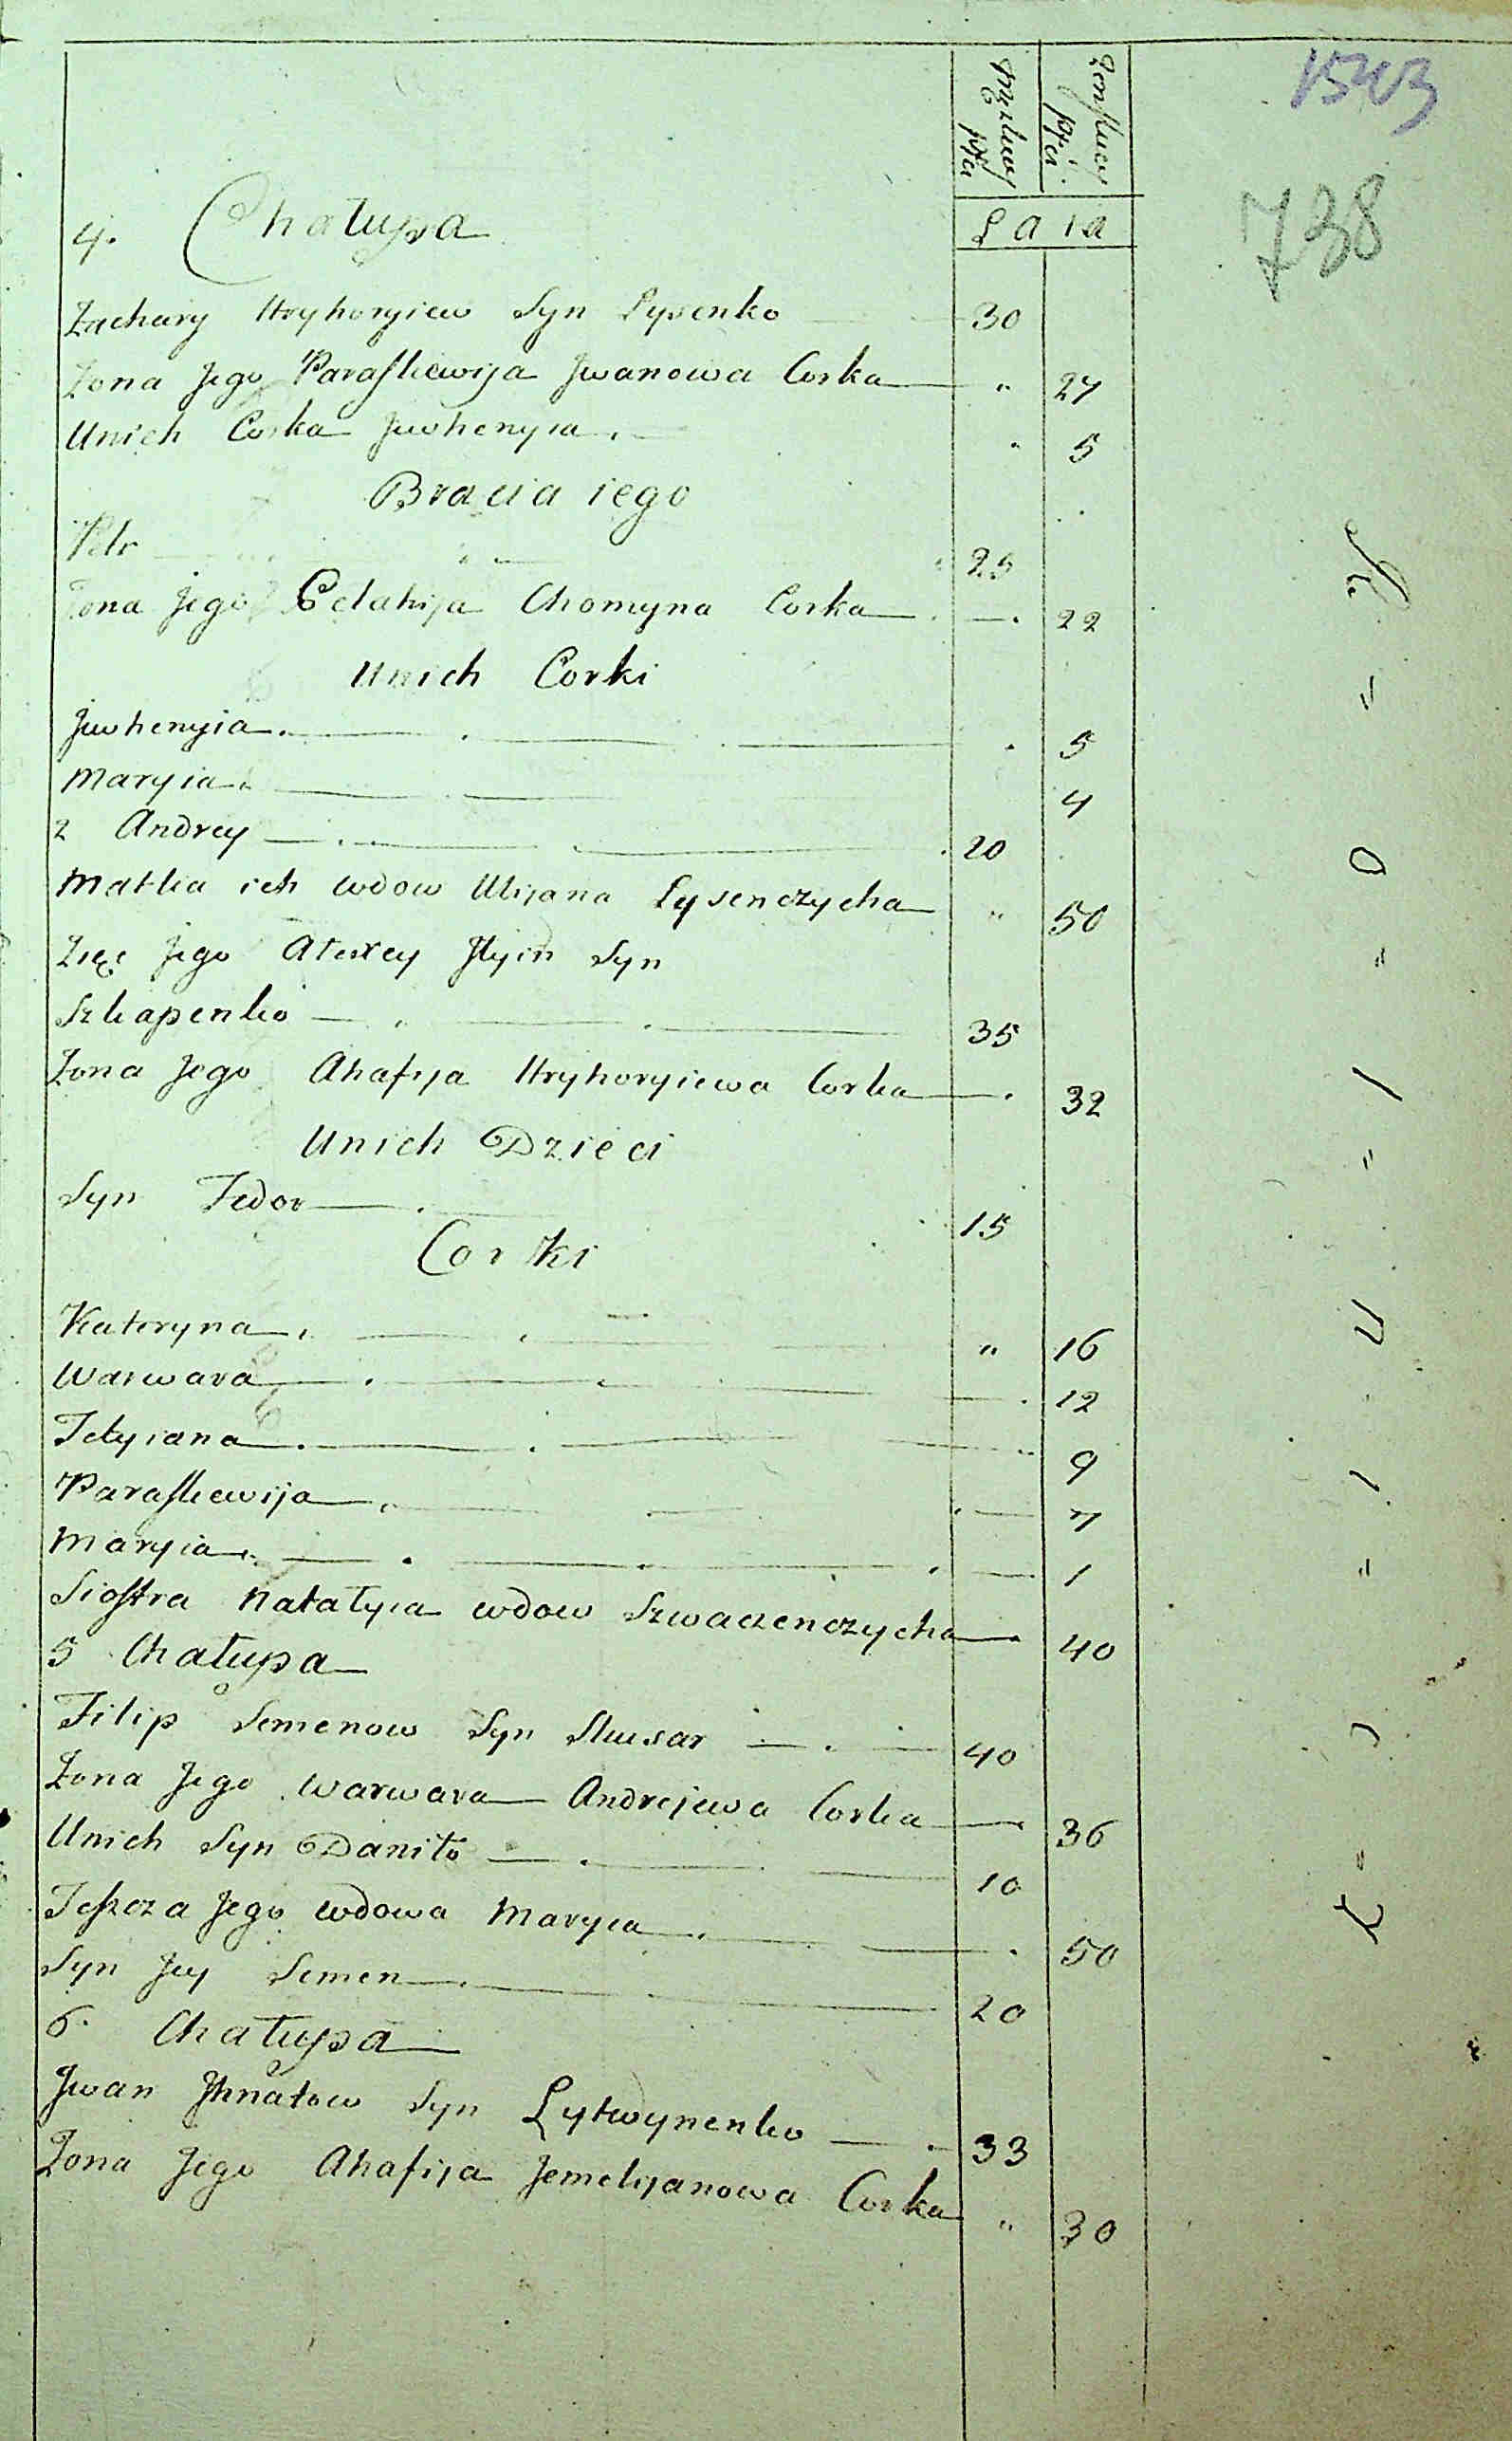 1543
738
Męzkiey płci
Żenſkiey płci
Lata
4. Chałupa
Zachary Hryhoryiew Syn Lysenko 30
Zona Jego Paraſkiewija Jwanowa Corka " 27
Unich Corka Juwhenyia . 5
Bracia iego
Petr 25
Zona jego Pelahija Chomyna Corka 22
Unich Corki
Juwhenyia . 5
Maryia 4
2 Andrey 20
Matka ich wdow Ulijana Lysenczycha " 50
Zięć Jego Alexey Jlyin Syn
Szkapenko 35
Zona Jego Ahafija Hryhoryiewa Corka 32
Unich Dzieci
Syn Fedor 15
Corki
Kateryna " 16
Warwara 12
Tetyiana 9
Paraſkiewija 7
Maryia 1
Sioſtra Natalyia wdow Szwaczenczycha 40
5 Chałupa
Filip Semenow Syn Slusar 40
Zona Jego Warwara Andrejewa Corka 36
Unich Syn Daniło 10
Teſzcza Jego wdowa Maryia 50
Syn Jey Semen 20
6. Chałupa
Jwan Jhnatow Syn Lytwynenko 33
Zona Jego Ahafija Jemelijanowa Corka " 30